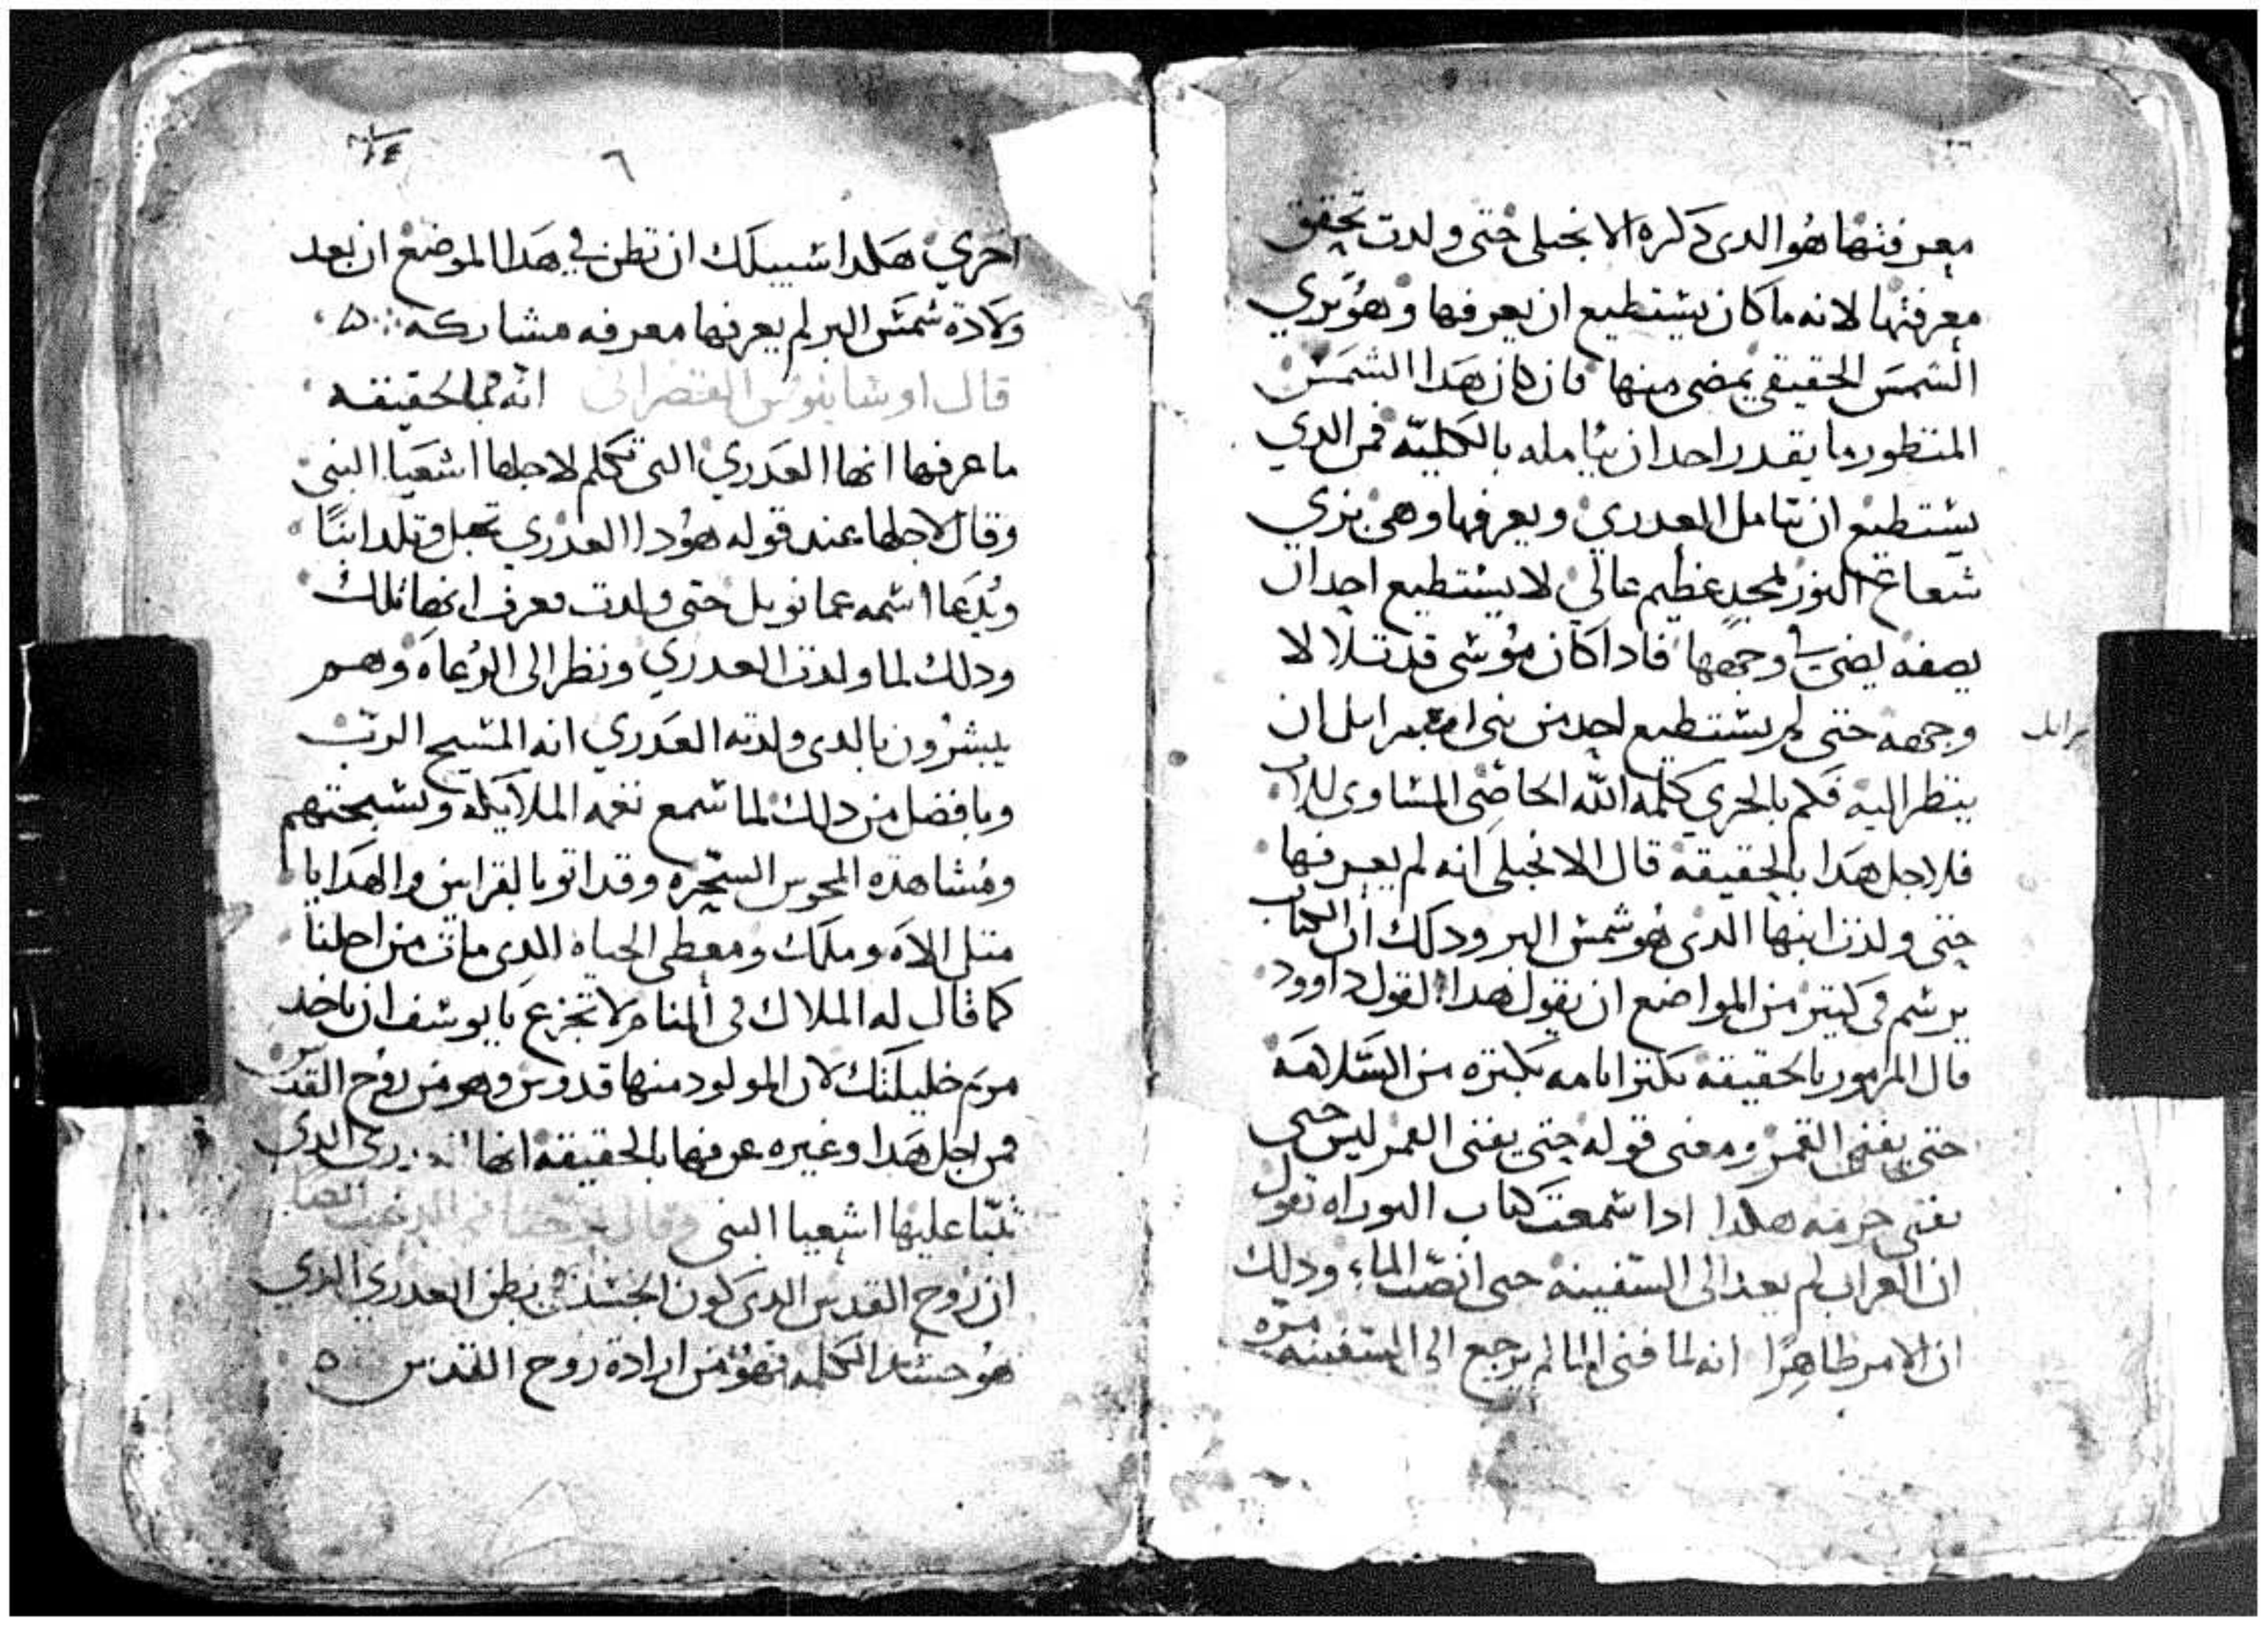 معرفتها هو الدى دكره الانجيلى حتى ولدت تحقق
معرفتها لانه ما كان يستطيع ان يعرفها وهو يري
الشمس الحقيقي يمضى منها فان كان هدا الشمس
المنظور ما يقدر احد ان يتامله بالكليه فمن الدي
يستطيع ان يتامل العدري ويعرفها وهى تري
شعاع النور لمجد عظيم عالي لا يستطيع احد ان
يصفه يضى وجهها فادا كان موسى قد تلالا
وجهه حتى لم يستطيع احد من بنى اسرايل ان
ينظر اليه فكم بالحري كلمه الله الخاصى المساوى للاب
فلاجل هدا بالحقيقه قال الانجيلى انه لم يعرفها
حتى ولدت ابنها الدى هو شمس البر ودلك ان الكتاب
يرسم فى كتير من المواضع ان يقول هدا القول داوود
قال المزمور بالحقيقه تكتر ايامه بكتره من السلامه
حتى يفنى القمر ومعنى قوله حتى يفنى القمر ليس حتى
يفنى جرمه هكدا ادا سمعت كتاب التوراه تقول
ان الغراب لم يعد الى السفينه حتى انصب الماء ودلك
ان الامر ظاهرًا انه لما فنى الما لم يرجع الى السفينه مره
رايل
٦
اخري هكدا سبيلك ان تظن في هدا الموضع ان بعد
ولادة شمس البر لم يعرفها معرفه مشاركه
قال انه بالحقيقه
ما عرفها انها العدري التى تكلم لاجلها اشعيا النبى
وقال لاجلها عند قوله هودا العدري تحبل وتلد ابنًا
ويدعا اسمه عمانويل حتى ولدت معرف انها تلك
ودلك لما ولدت العدري ونظر الى الرعاه وهم
يبشرون بالدى ولدته العدري انه المسيح الرب
وبافضل من دلك لما سمع نغمه الملايكه وتسبحتهم
ومشاهدة المجوس السحره وقد اتو بالقرابين والهدايا
متل الاه وملك ومعطى الحياه الدى مات من اجلنا
كما قال له الملاك فى المنام لا تجزع يا يوسف ان تاخد
مريم خليلتك لان المولود منها قدوس وهو من روح القدس
فمن اجل هدا وغيره عرفها بالحقيقه انها العدري الدى
تنبا عليها اشعيا النبى وقال
ان روح القدس الدى كون الجسد فى بطن العدري الدي
هو جسد الكلمه فهو من ارادة روح القدس